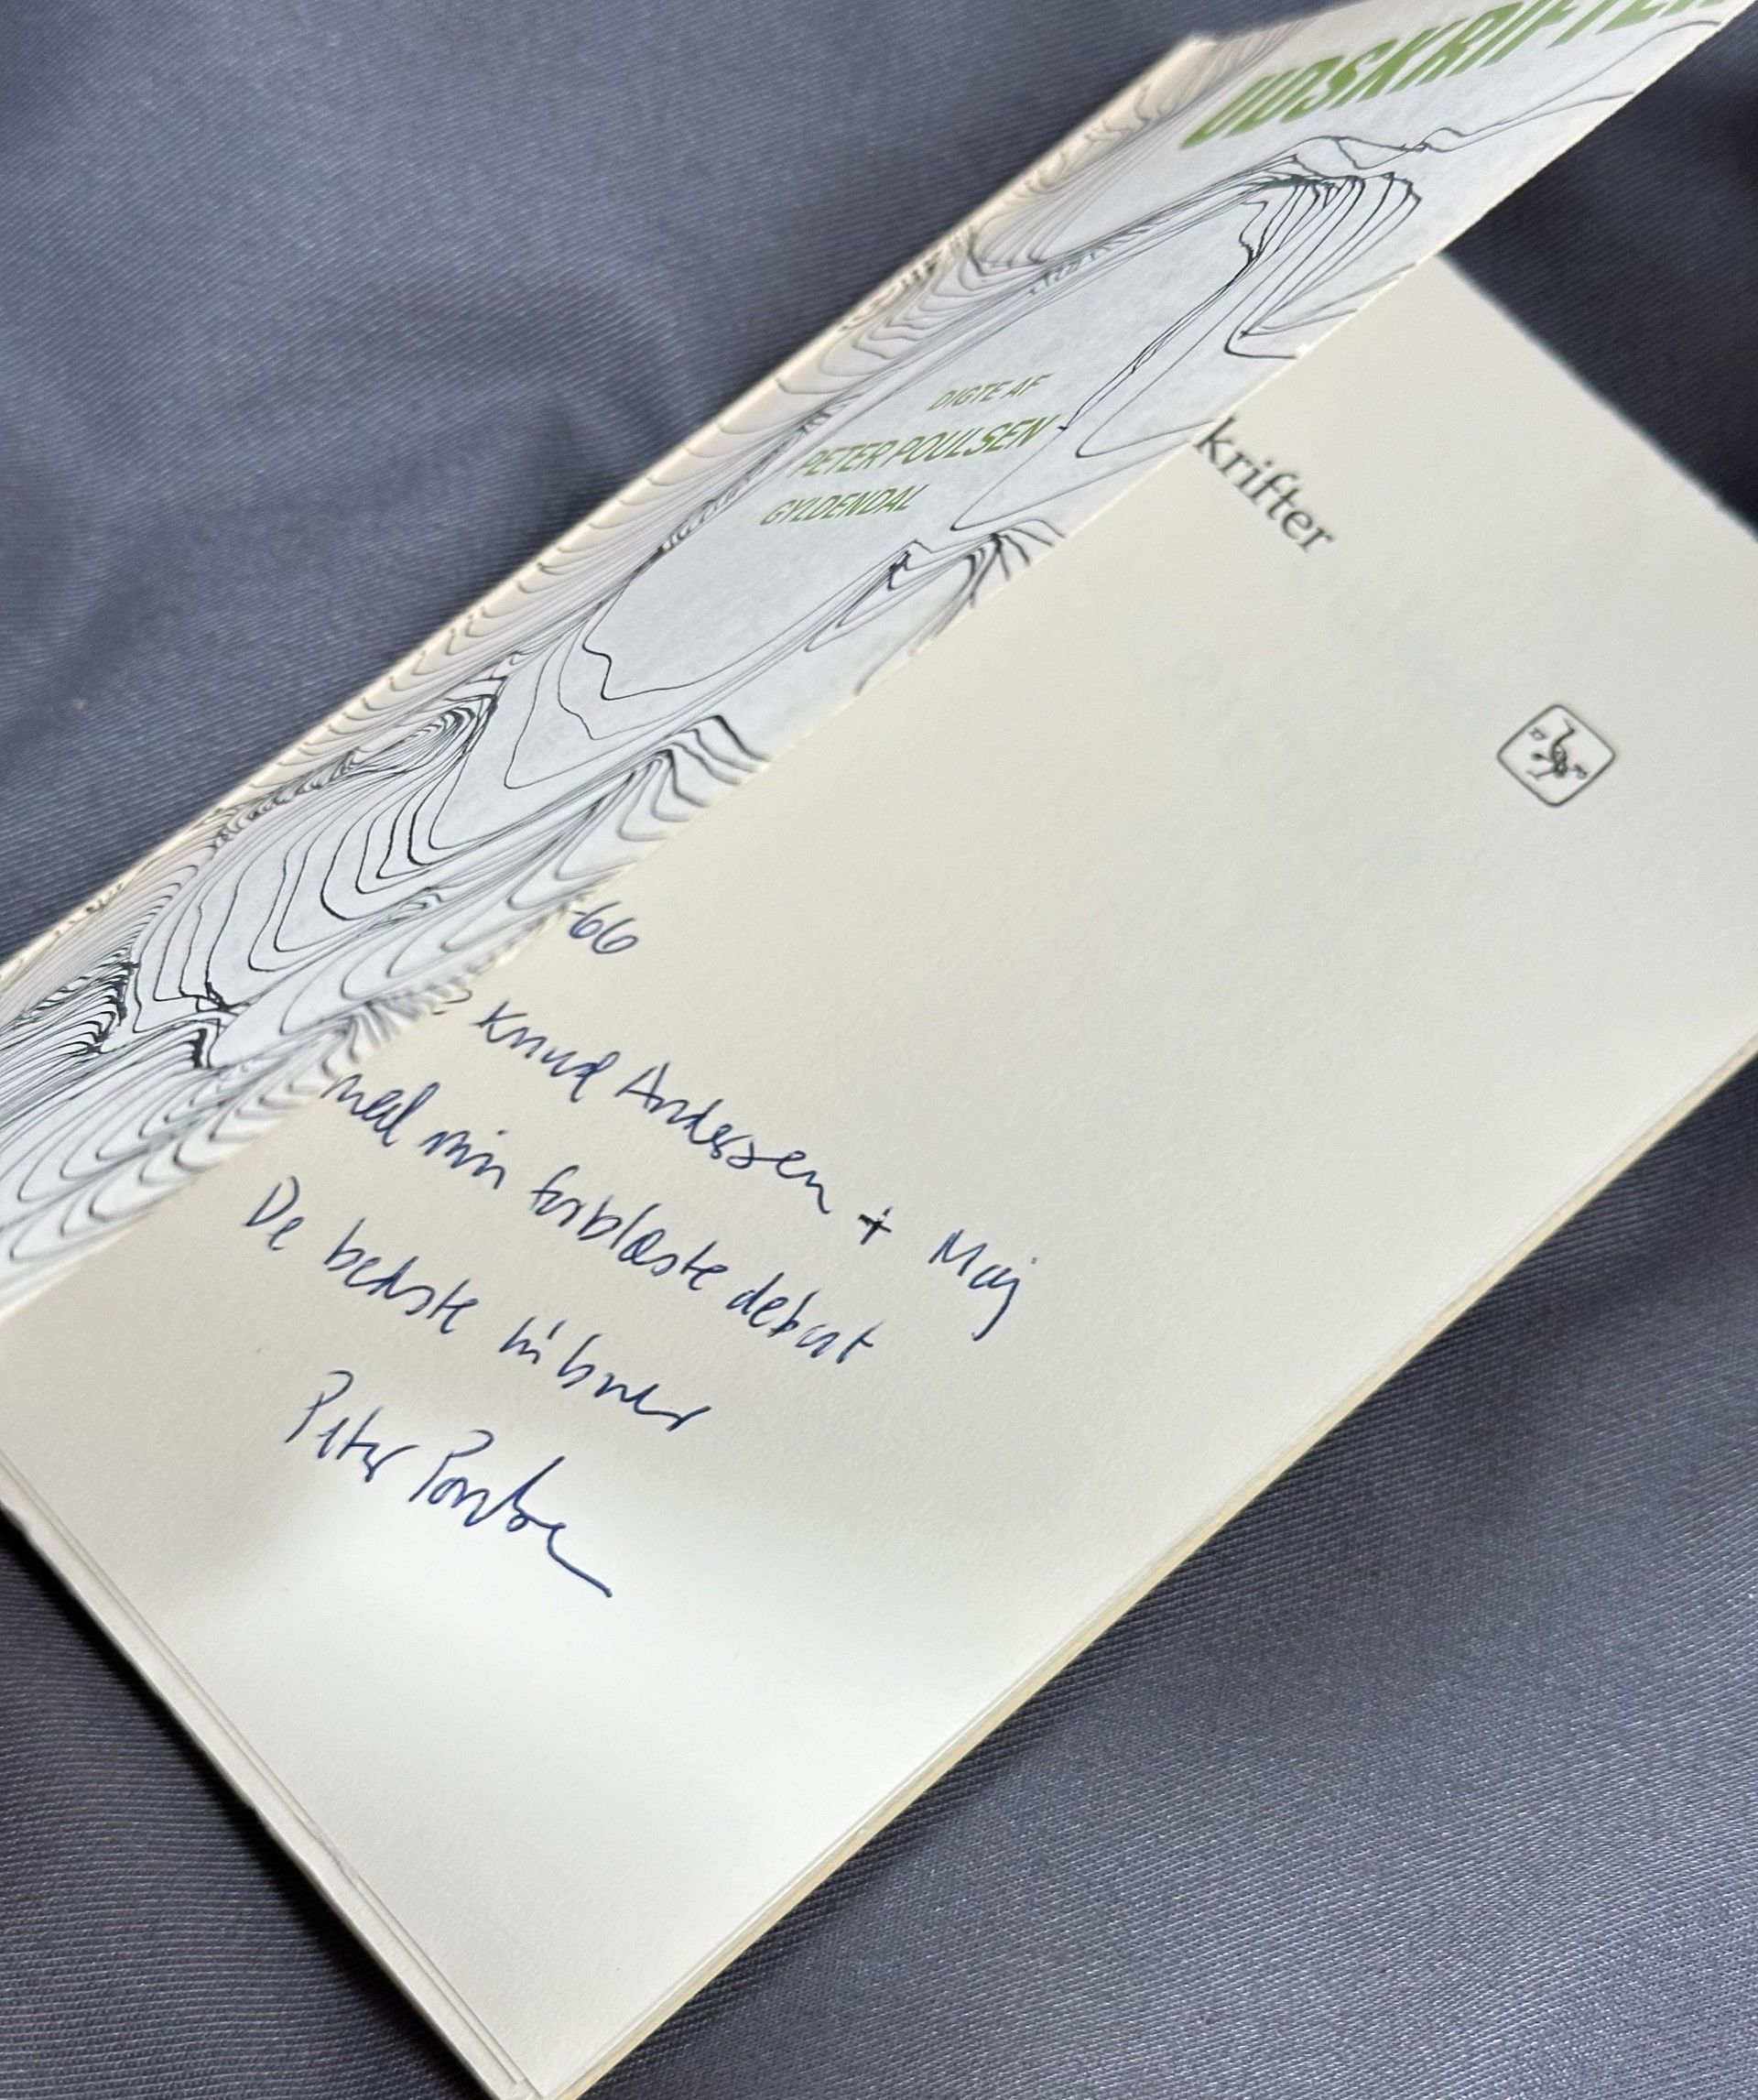 UDSKRIFTER
DIGTE AF
PETER POULSEN
GYLDENDAL
krifter
-66
Knud Andersen + Maj
med min forblæste debut
De bedste hilsner
Peter Poulsen